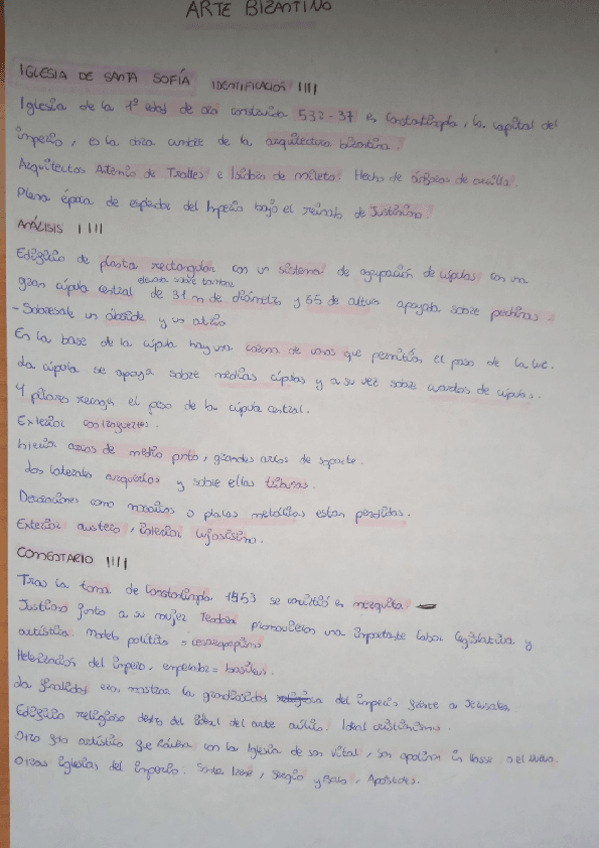 ARTE BIZANTINO
IGLESIA DE SANTA SOFÍA IDENTIFICACIÓN
Iglesia de la 1ª edad de oro construida 532-37 en Constantinopla, la capital del
imperio, es la obra cumbre de la arquitectura bizantina.
Arquitectos Artemio de Tralles e Isidoro de mileto. Hecho de de arcilla.
Plena época de esplendor del Imperio bajo el reinado de Justiniano.
ANÁLISIS
Edificio de planta rectangular con un sistema de agrupación de cúpulas con una
elevada sobre tambor
gran cúpula central de 31 m de diámetro y 55 de altura apoyada sobre pechinas.
- Sobresale un ábside y un atrio
En la base de la cúpula hay una corona de vanos que permitían el paso de la luz.
La cúpula se apoya sobre medias cúpulas y a su vez sobre cuartos de cúpula.
4 pilares recogen el peso de la cúpula central.
Exterior contrafuertes.
arcos de medio punto, grandes arcos de soporte.
dos laterales arquerías y sobre ellas tribunas.
Decoraciones como mosaicos o placas metálicas estan perdidas.
Exterior austero, interior lujosísimo.
COMENTARIO
Tras la toma de Constantinopla 1453 se convirtió en mezquita.
Justiniano junto a su mujer Teodora promovieron una importante labor legislativa y
artística. Modelo político = cesaropapismo
Helenización del Imperio, emperador = basileus.
La finalidad era mostrar la grandiosidad del imperio frente a Jerusalén
Edificio religioso dentro del ideal del arte áulico. Ideal cristianismo.
Otro artístico que con la Iglesia de san Vital, san apolinar in classe o el
Otras iglesias del Imperio: Santa Irene, Sergio y Baco, Apóstoles.